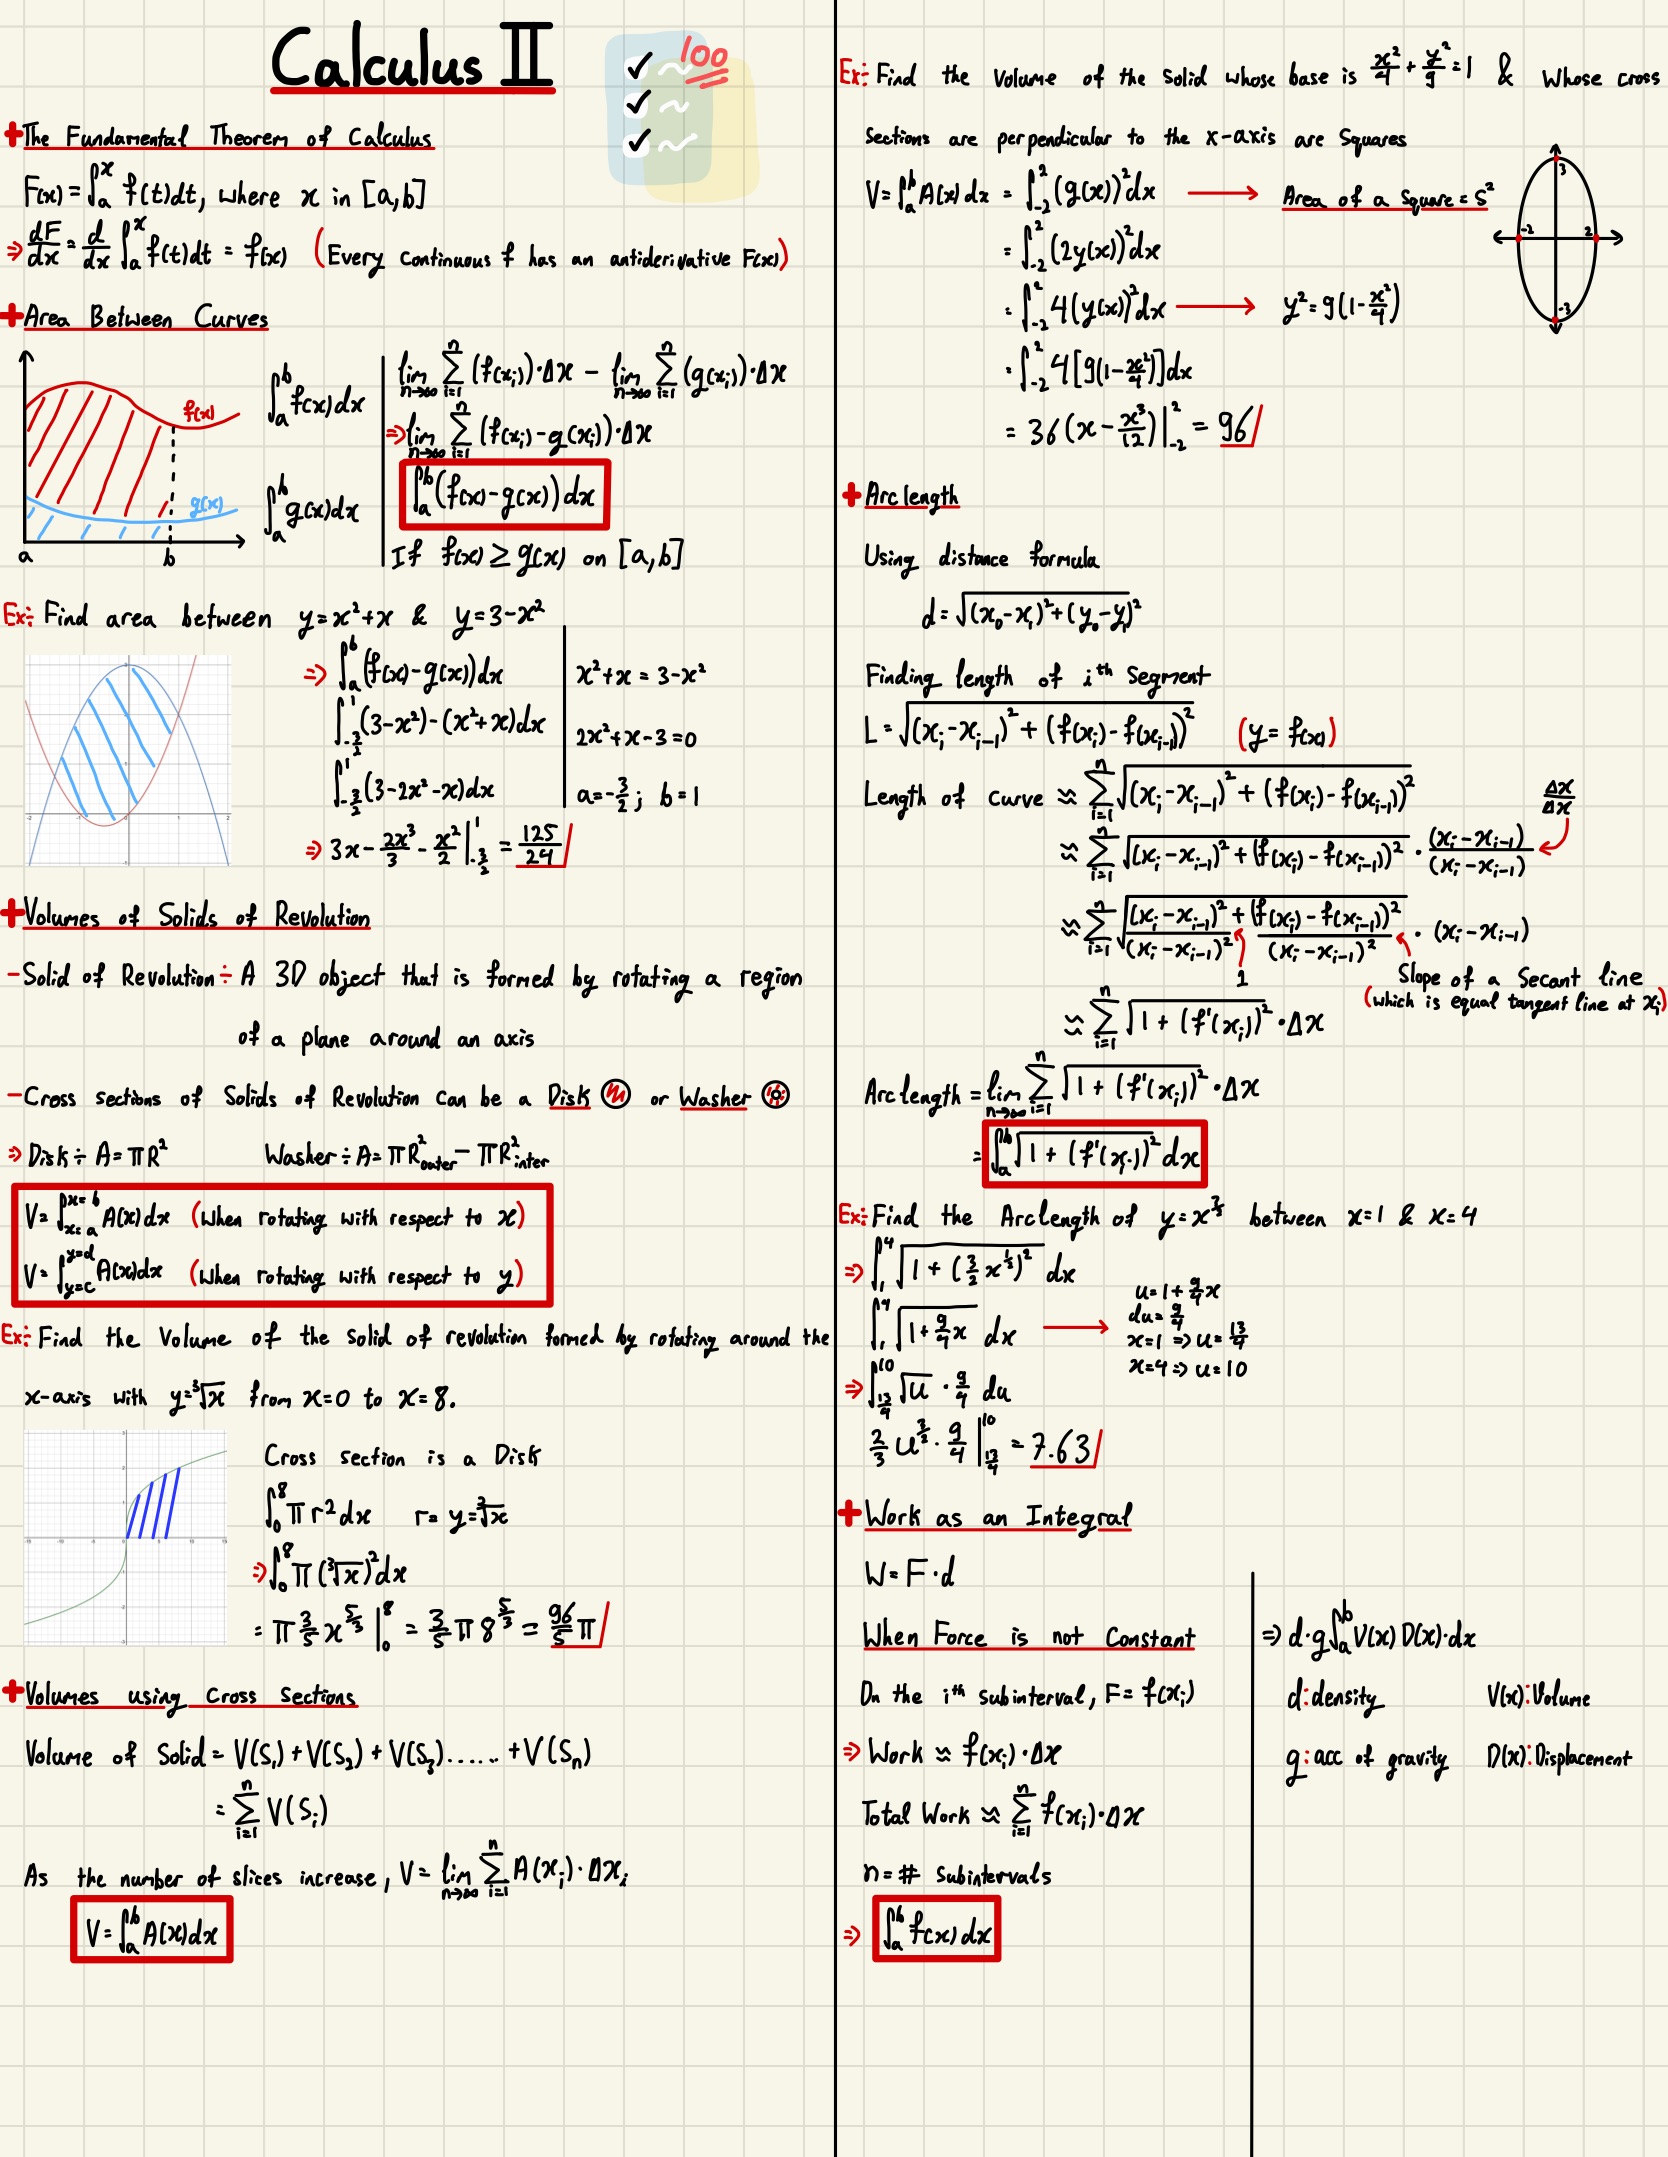 Calculus II
100
+The Fundamental Theorem of Calculus
F(x) = ∫_a^x f(t)dt, where x in [a,b]
⇒ dF/dx = d/dx ∫_a^x f(t)dt = f(x) (Every continuous f has an antiderivative F(x))
+Area Between Curves
f(x)
g(x)
a b
∫_a^b f(x)dx
∫_a^b g(x)dx
lim_{n→∞} Σ_{i=1}^n (f(x_i))·Δx − lim_{n→∞} Σ_{i=1}^n (g(x_i))·Δx
⇒ lim_{n→∞} Σ_{i=1}^n (f(x_i)-g(x_i))·Δx
∫_a^b (f(x)-g(x))dx
If f(x) ≥ g(x) on [a,b]
Ex: Find area between y=x²+x & y=3-x²
⇒ ∫_a^b (f(x)-g(x))dx
∫_{-3/2}^1 (3-x²)-(x²+x)dx
∫_{-3/2}^1 (3-2x²-x)dx
⇒ 3x - 2x³/3 - x²/2 |_{-3/2}^1 = 125/24
x²+x = 3-x²
2x²+x-3=0
a=-3/2; b=1
+Volumes of Solids of Revolution
-Solid of Revolution ÷ A 3D object that is formed by rotating a region
of a plane around an axis
-Cross sections of Solids of Revolution can be a Disk or Washer
⇒ Disk ÷ A=πR² Washer ÷ A= πR²outer - πR²inter
V= ∫_{x=a}^{x=b} A(x)dx (when rotating with respect to x)
V= ∫_{y=c}^{y=d} A(x)dx (when rotating with respect to y)
Ex: Find the Volume of the solid of revolution formed by rotating around the
x-axis with y=∛x from x=0 to x=8.
Cross section is a Disk
∫_0^8 π r² dx r= y=∛x
⇒ ∫_0^8 π (∛x)² dx
= π 3/5 x^{5/3} |_0^8 = 3/5 π 8^{5/3} = 96/5 π
+Volumes using Cross sections
Volume of Solid = V(S₁) + V(S₂) + V(S₃)...... + V(S_n)
= Σ_{i=1}^n V(S_i)
As the number of slices increase, V= lim_{n→∞} Σ_{i=1}^n A(x_i)·Δx_i
V= ∫_a^b A(x)dx
Ex: Find the Volume of the Solid whose base is x²/4 + y²/9 = 1 & Whose cross
Sections are perpendicular to the x-axis are Squares
V= ∫_a^b A(x)dx = ∫_{-2}^2 (g(x))² dx → Area of a Square = S²
= ∫_{-2}^2 (2y(x))² dx
= ∫_{-2}^2 4(y(x))² dx → y²= 9(1-x²/4)
= ∫_{-2}^2 4[9(1-x²/4)]dx
= 36(x - x³/12)|_{-2}^2 = 96
3
-2 2
-3
+Arc length
Using distance formula
d= √((x₀-x₁)²+(y₀-y₁)²)
Finding length of i^th Segment
L= √((x_i-x_{i-1})² + (f(x_i)-f(x_{i-1}))²) (y= f(x))
Length of curve ≈ Σ_{i=1}^n √((x_i-x_{i-1})² + (f(x_i)-f(x_{i-1}))²) Δx/Δx
≈ Σ_{i=1}^n √((x_i-x_{i-1})² + (f(x_i)-f(x_{i-1}))²) · (x_i-x_{i-1})/(x_i-x_{i-1})
≈ Σ_{i=1}^n √((x_i-x_{i-1})²/(x_i-x_{i-1})² + (f(x_i)-f(x_{i-1}))²/(x_i-x_{i-1})²) · (x_i-x_{i-1})
1 Slope of a Secant line
(which is equal tangent line at x_i)
≈ Σ_{i=1}^n √(1 + (f'(x_i))²) ·Δx
Arc length = lim_{n→∞} Σ_{i=1}^n √(1 + (f'(x_i))²) ·Δx
= ∫_a^b √(1 + (f'(x_i))²) dx
Ex: Find the Arc length of y=x^{3/2} between x=1 & x=4
⇒ ∫_1^4 √(1 + (3/2 x^{1/2})²) dx
∫_1^4 √(1+ 9/4 x) dx →
u=1+ 9/4 x
du= 9/4
x=1 ⇒ u= 13/4
x=4 ⇒ u=10
⇒ ∫_{13/4}^{10} √u · 9/4 du
2/3 u^{3/2} · 9/4 |_{13/4}^{10} = 7.63
+Work as an Integral
W= F·d
When Force is not Constant
On the i^th subinterval, F= f(x_i)
⇒ Work ≈ f(x_i)·Δx
Total Work ≈ Σ_{i=1}^n f(x_i)·Δx
n=# Subintervals
⇒ ∫_a^b f(x)dx
⇒ d·g ∫_a^b V(x) D(x)·dx
d:density V(x):Volume
g:acc of gravity D(x):Displacement